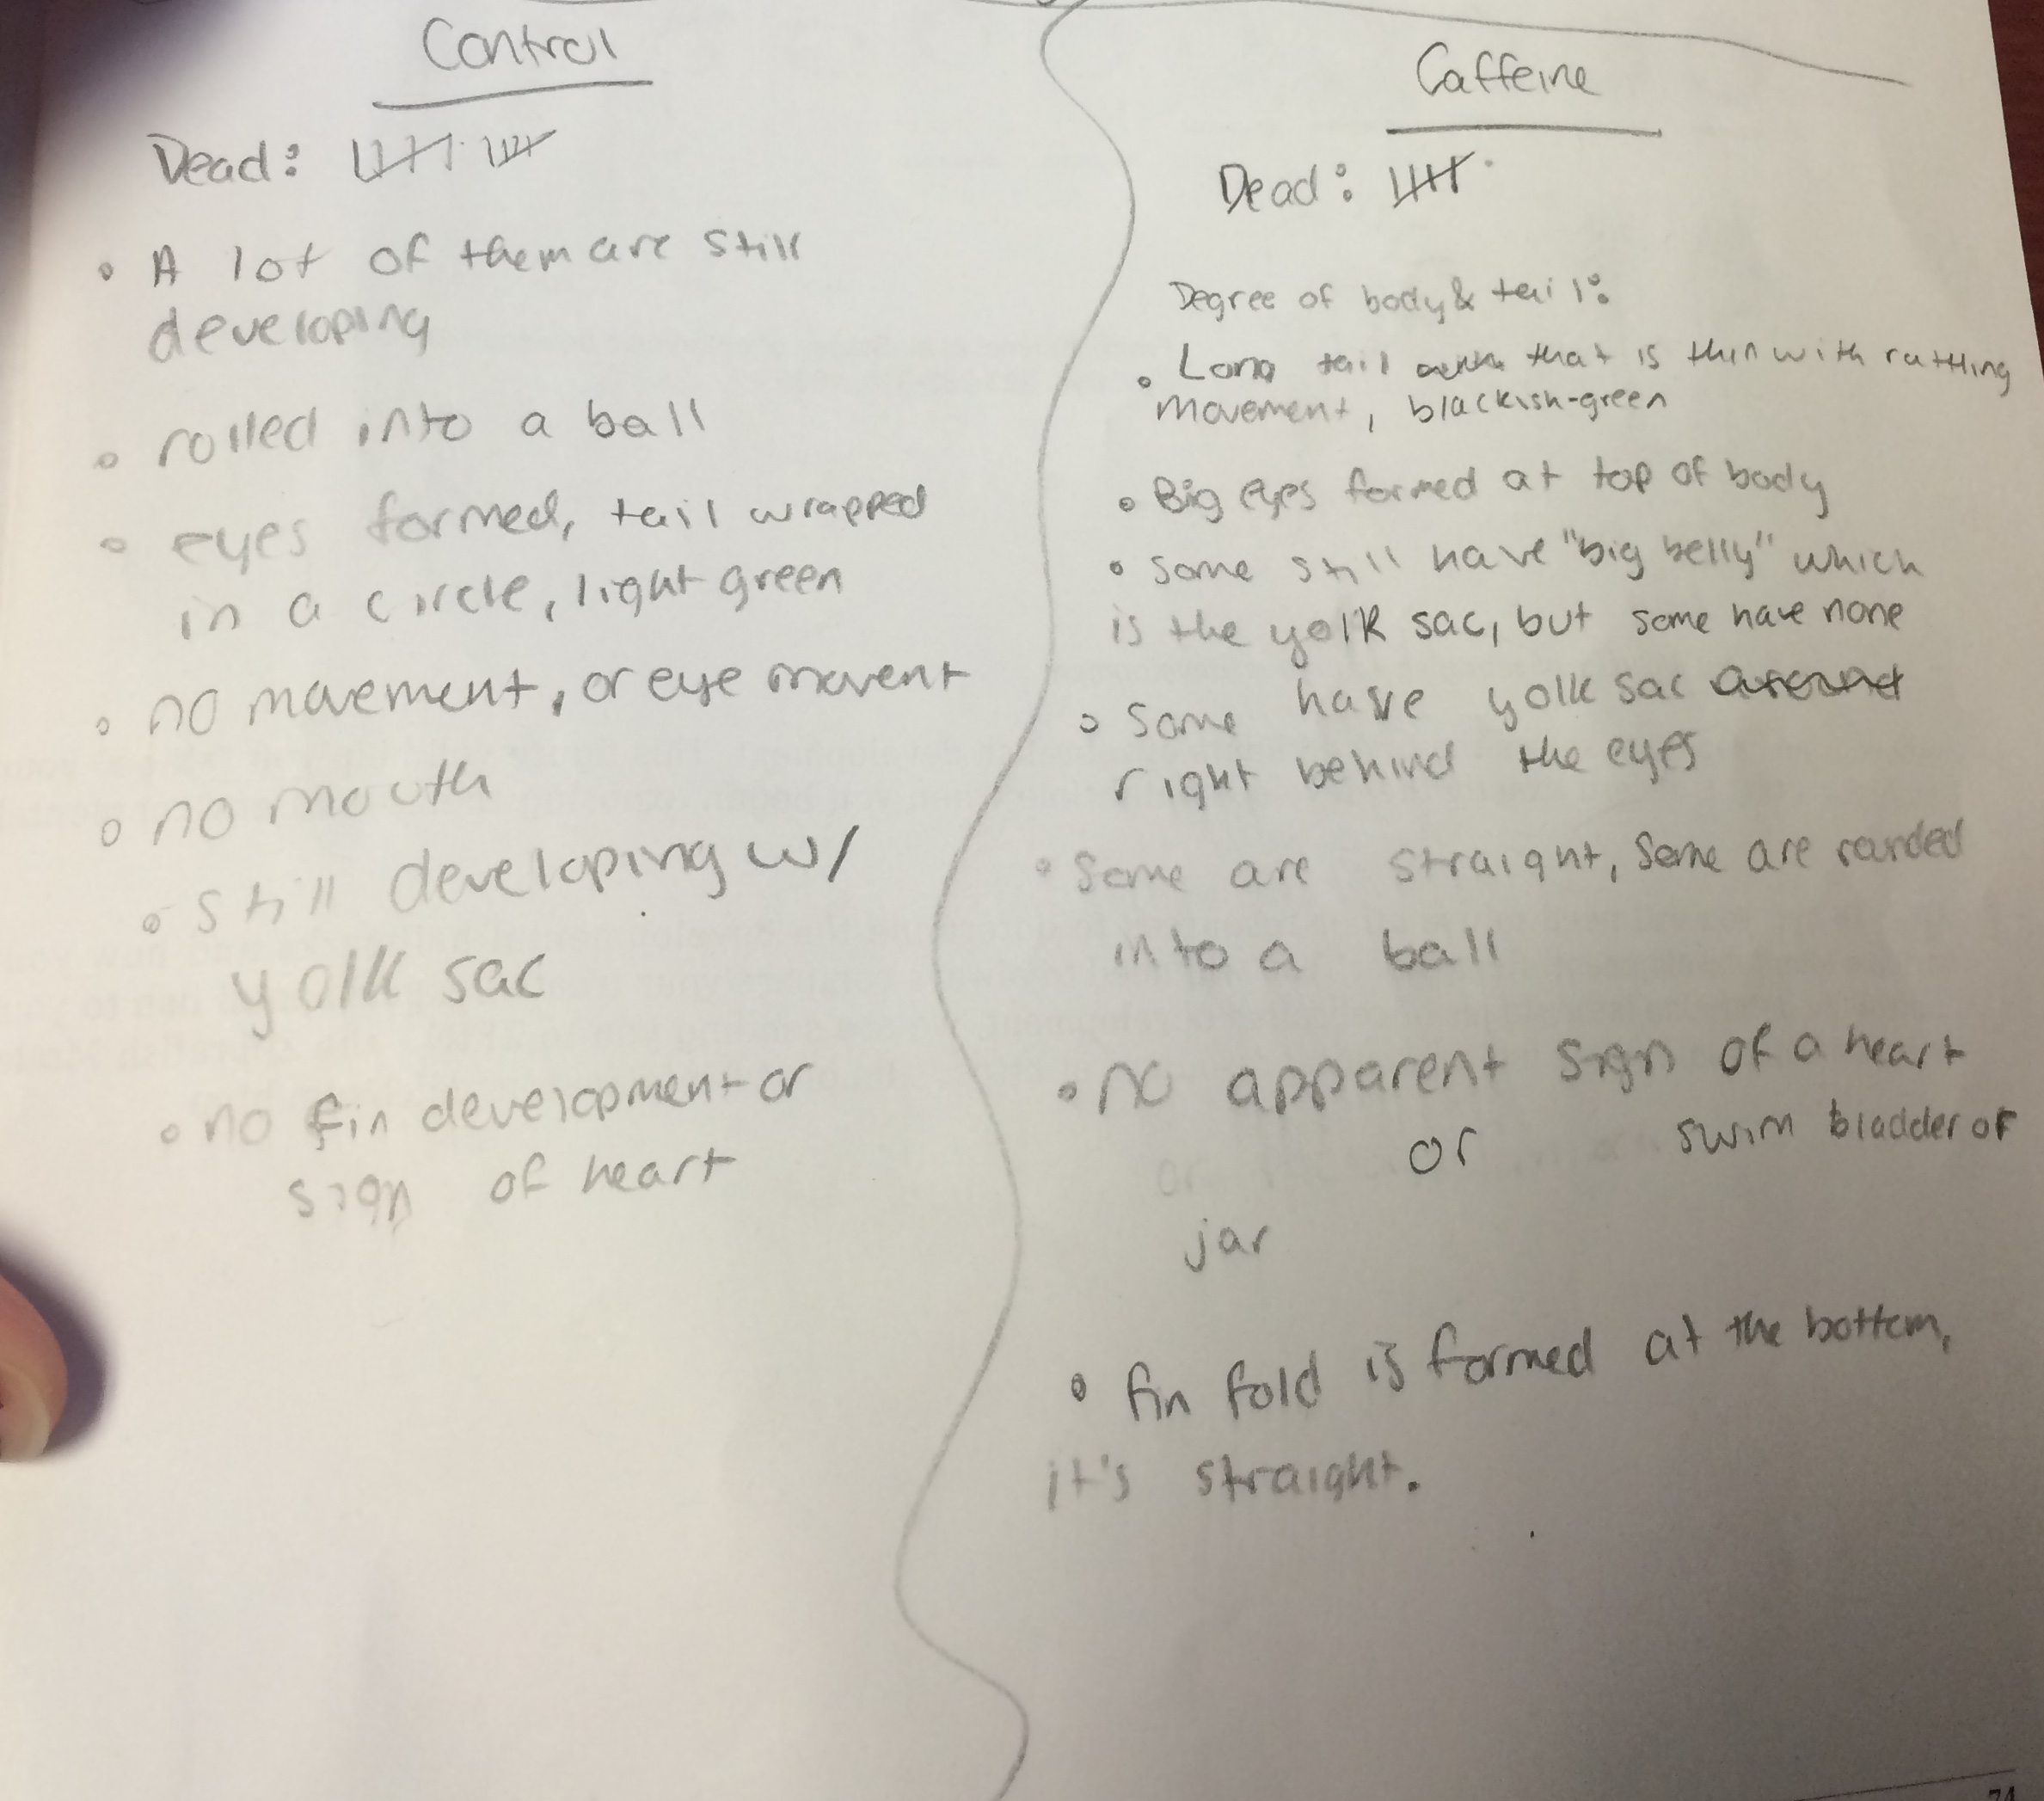 Control
Dead: 卌 卌
• A lot of them are still
developing
• rolled into a ball
• eyes formed, tail wrapped
in a circle, light green
• no movement, or eye movent
• no mouth
• still developing w/
yolk sac
• no fin development or
sign of heart
Caffeine
Dead: 卌
Degree of body & tail:
• Long tail that is thin with rattling
movement, blackish-green
• Big eyes formed at top of body
• some still have "big belly" which
is the yolk sac, but some have none
• some have yolk sac around
right behind the eyes
• Some are straight, some are rounded
into a ball
• no apparent sign of a heart
or swim bladder of
jar
• fin fold is formed at the bottom,
it's straight.
74